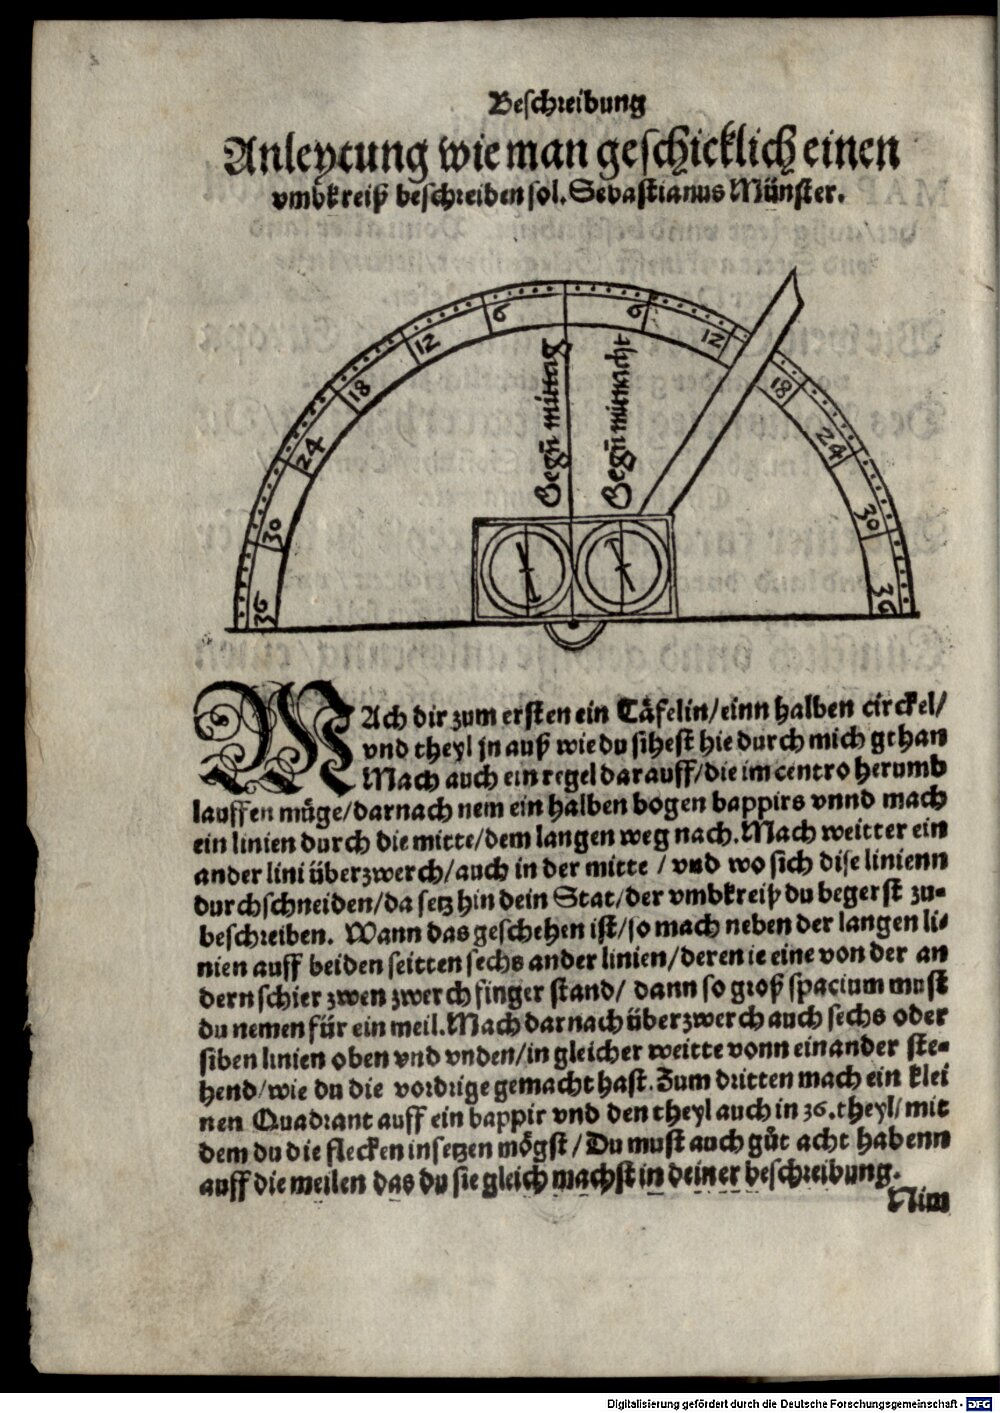 Beschreibung
Anleytung wie man geschicklich einen
vmbkreiß beschreiben sol. Sebastianus Münster.
6 6
12 12
18 18
24 24
30 30
36 36
Begin̄ mittag
Begin̄ mitnacht
MAch dir zum ersten ein Täfelin/einn halben circkel/
vnd theyl jn auß wie du sihest hie durch mich gthan
Mach auch ein regel darauff/die im centro herumb
lauffen müge/darnach nem ein halben bogen bappirs vnnd mach
ein linien durch die mitte/dem langen weg nach. Mach weitter ein
ander lini überzwerch/auch in der mitte / vnd wo sich dise linienn
durchschneiden/da setz hin dein Stat/der vmbkreiß du begerst zu-
beschreiben. Wann das geschehen ist/so mach neben der langen li-
nien auff beiden seitten sechs ander linien/deren ie eine von der an
dern schier zwen zwerch finger stand/ dann so groß spacium must
du nemen für ein meil. Mach darnach überzwerch auch sechs oder
siben linien oben vnd vnden/in gleicher weitte vonn einander ste-
hend/wie du die vordrige gemacht hast. Zum dritten mach ein klei
nen Quadrant auff ein bappir vnd den theyl auch in 36. theyl/mit
dem du die flecken insetzen mögst/Du must auch gůt acht habenn
auff die meilen das du sie gleich machst in deiner beschreibung.
Nim
Digitalisierung gefördert durch die Deutsche Forschungsgemeinschaft - DFG